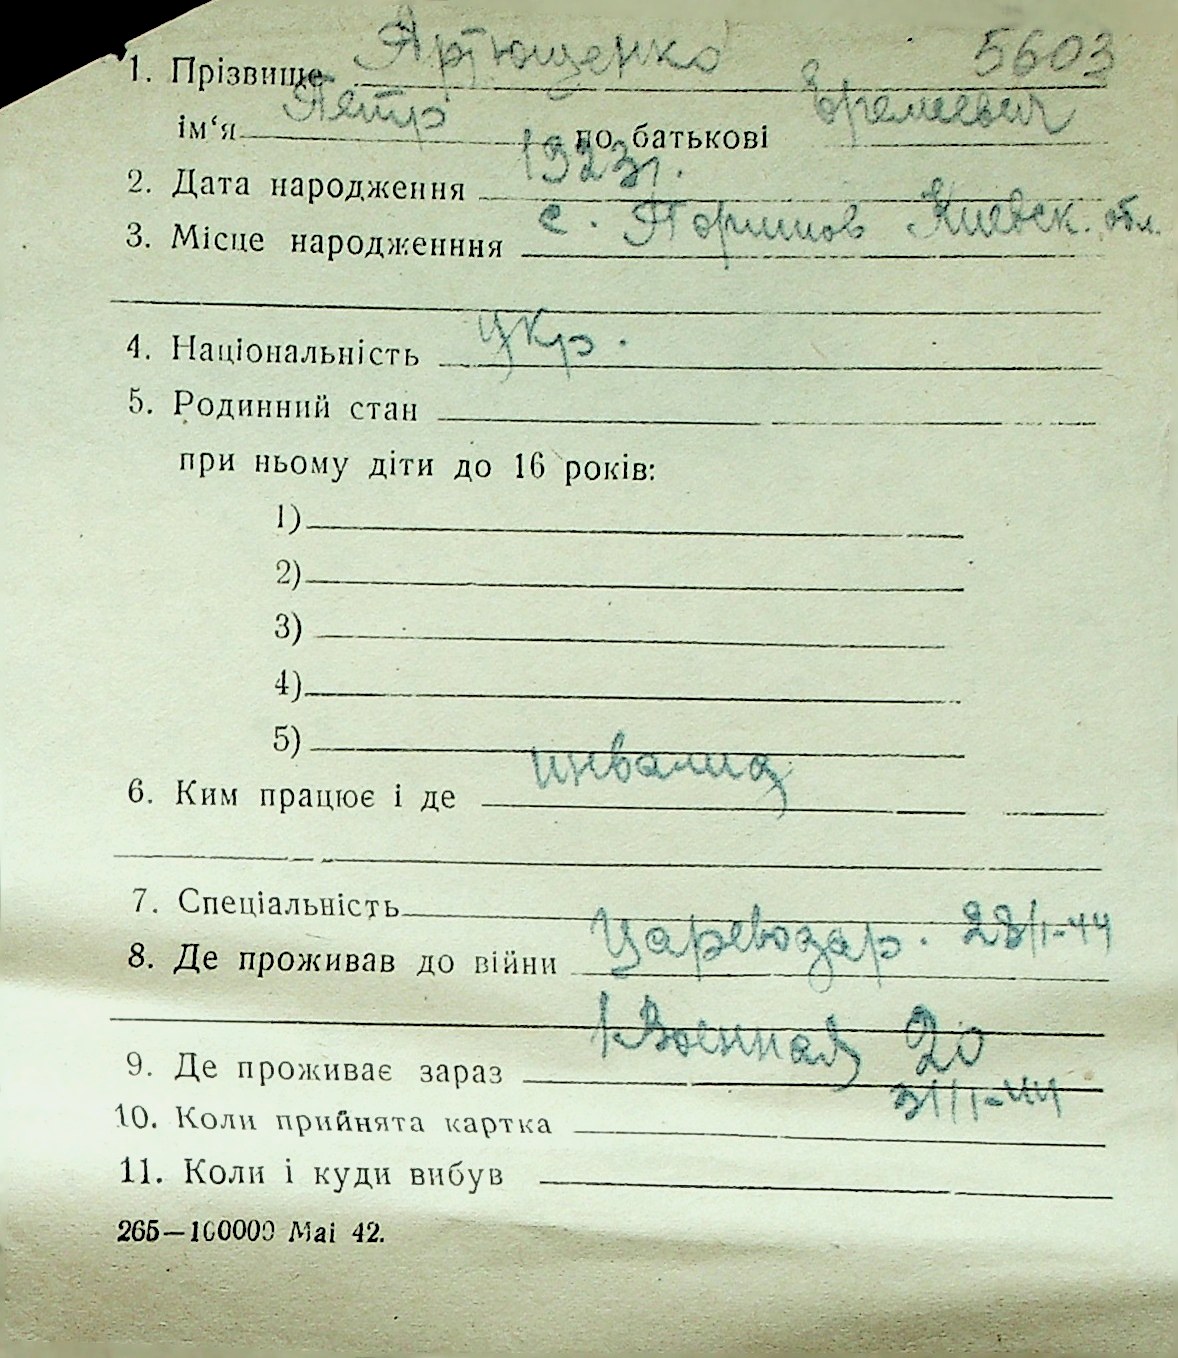 1. Прізвище Артющенко 5603
ім‘я Петр по батькові Еремеевич
2. Дата народження 1923 г.
3. Місце народженння с. Киевск. обл.
4. Національність укр.
5. Родинний стан
при ньому діти до 16 років:
1)
2)
3)
4)
5)
6. Ким працює і де инвалид
7. Спеціальність
8. Де проживав до війни Цареводар. 28/I-44
9. Де проживає зараз Военная 20
10. Коли прийнята картка 31/I-44
11. Коли і куди вибув
265—100000 Mai 42.